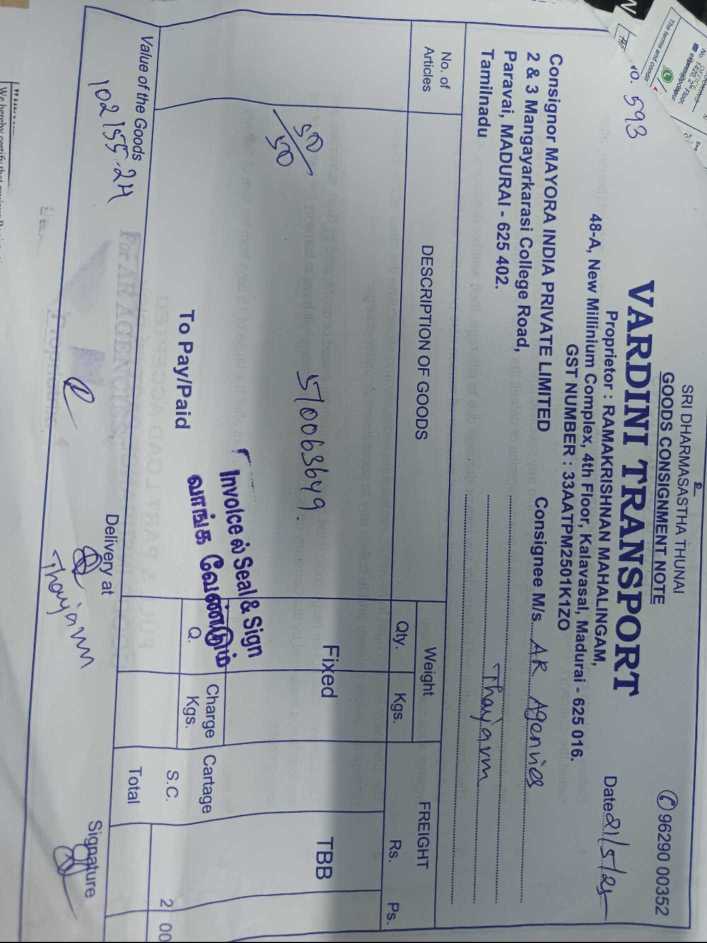 SRI DHARMASASTHA THUNAI
GOODS CONSIGNMENT NOTE
✆ 96290 00352
No. 593
VARDINI TRANSPORT
Proprietor : RAMAKRISHNAN MAHALINGAM,
48-A, New Millinium Complex, 4th Floor, Kalavasal, Madurai - 625 016.
GST NUMBER : 33AATPM2501K1ZO
Date 21/5/25
Consignor MAYORA INDIA PRIVATE LIMITED
2 & 3 Mangayarkarasi College Road,
Paravai, MADURAI - 625 402.
Tamilnadu
Consignee M/s. AR Agencies
Thayanm
No. of Articles
DESCRIPTION OF GOODS
Weight
Qty.
Kgs.
FREIGHT
Rs.
Ps.
50/50
510063649.
Fixed
TBB
Invoice ல் Seal & Sign
வாங்க வேண்டும்
To Pay/Paid
Q.
Charge Kgs.
Cartage
S.C.
2 00
Total
Value of the Goods
102155.24
For AR AGENCIES
Delivery at
Thayanm
Signature